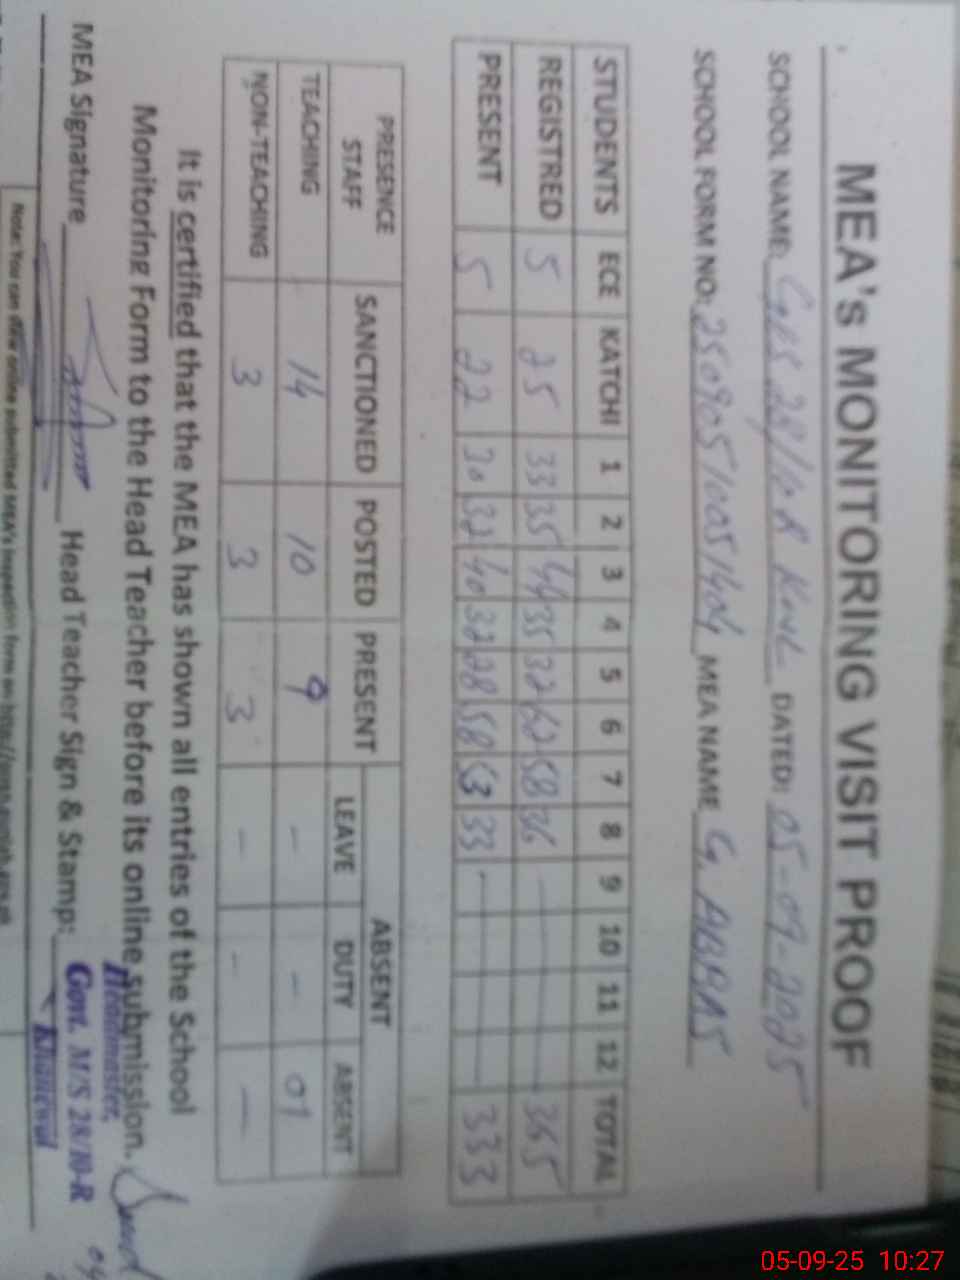 MEA's MONITORING VISIT PROOF
SCHOOL NAME: 28/10R DATED: 05-09-2025
SCHOOL FORM NO: 25090510051404 MEA NAME G. ABBAS
STUDENTS ECE KATCHI 1 2 3 4 5 6 7 8 9 10 11 12 TOTAL
REGISTRED 5 25 33 35 44 35 32 62 58 36 - - - - 365
PRESENT 5 22 30 32 40 32 28 58 53 33 - - - - 333
PRESENCE STAFF SANCTIONED POSTED PRESENT ABSENT
LEAVE DUTY ABSENT
TEACHING 14 10 9 - - 01
NON-TEACHING 3 3 3 - - -
It is certified that the MEA has shown all entries of the School
Monitoring Form to the Head Teacher before its online submission.
MEA Signature Head Teacher Sign & Stamp:
Headmaster,
Govt. M/S 28/10-R
Khanewal
Note: You can view online submitted MEA's inspection form on
05-09-25 10:27